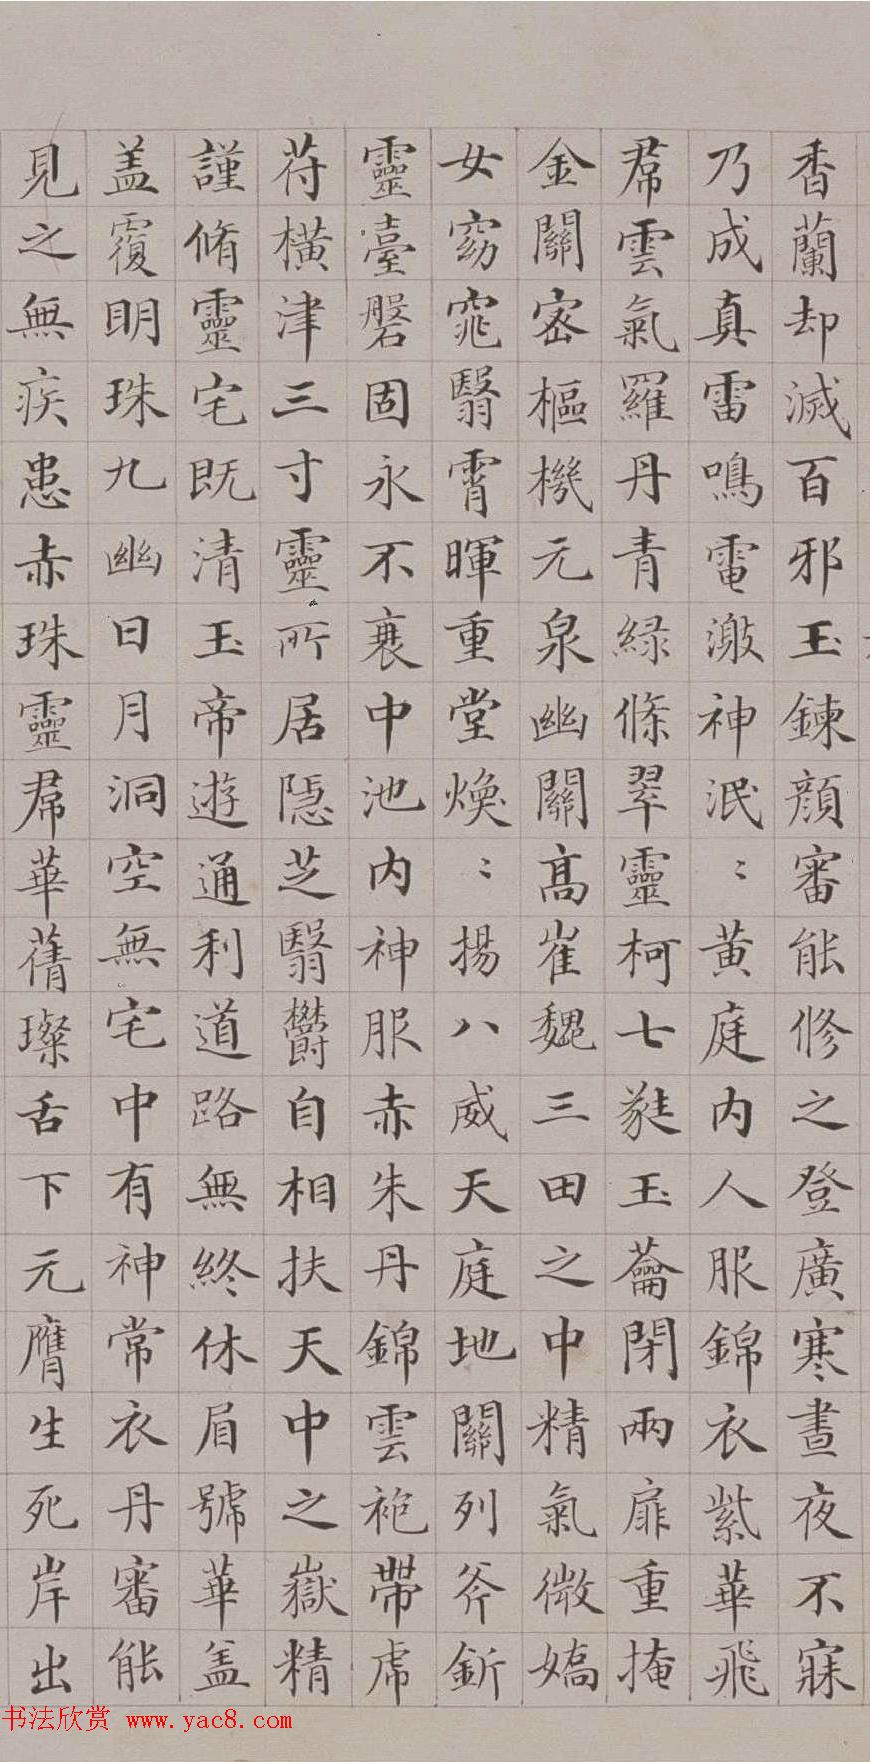 香蘭却滅百邪玉鍊顔審能修之登廣寒晝夜不寐
乃成真雷鳴電激神泯〻黄庭内人服錦衣紫華飛
帬雲氣羅丹青緑條翠靈柯七蕤玉蘥閉兩扉重掩
金關密樞機元泉幽關高崔巍三田之中精氣微嬌
女窈窕翳霄暉重堂煥〻揚八威天庭地關列斧釿
靈臺磐固永不衰中池内神服赤朱丹錦雲袍帶虎
苻橫津三寸靈所居隱芝翳欝自相扶天中之嶽精
謹脩靈宅既清玉帝遊通利道路無終休眉號華盖
盖覆明珠九幽日月洞空無宅中有神常衣丹審能
見之無疾患赤珠靈帬華蒨璨舌下元膺生死岸出
书法欣赏 www.yac8.com